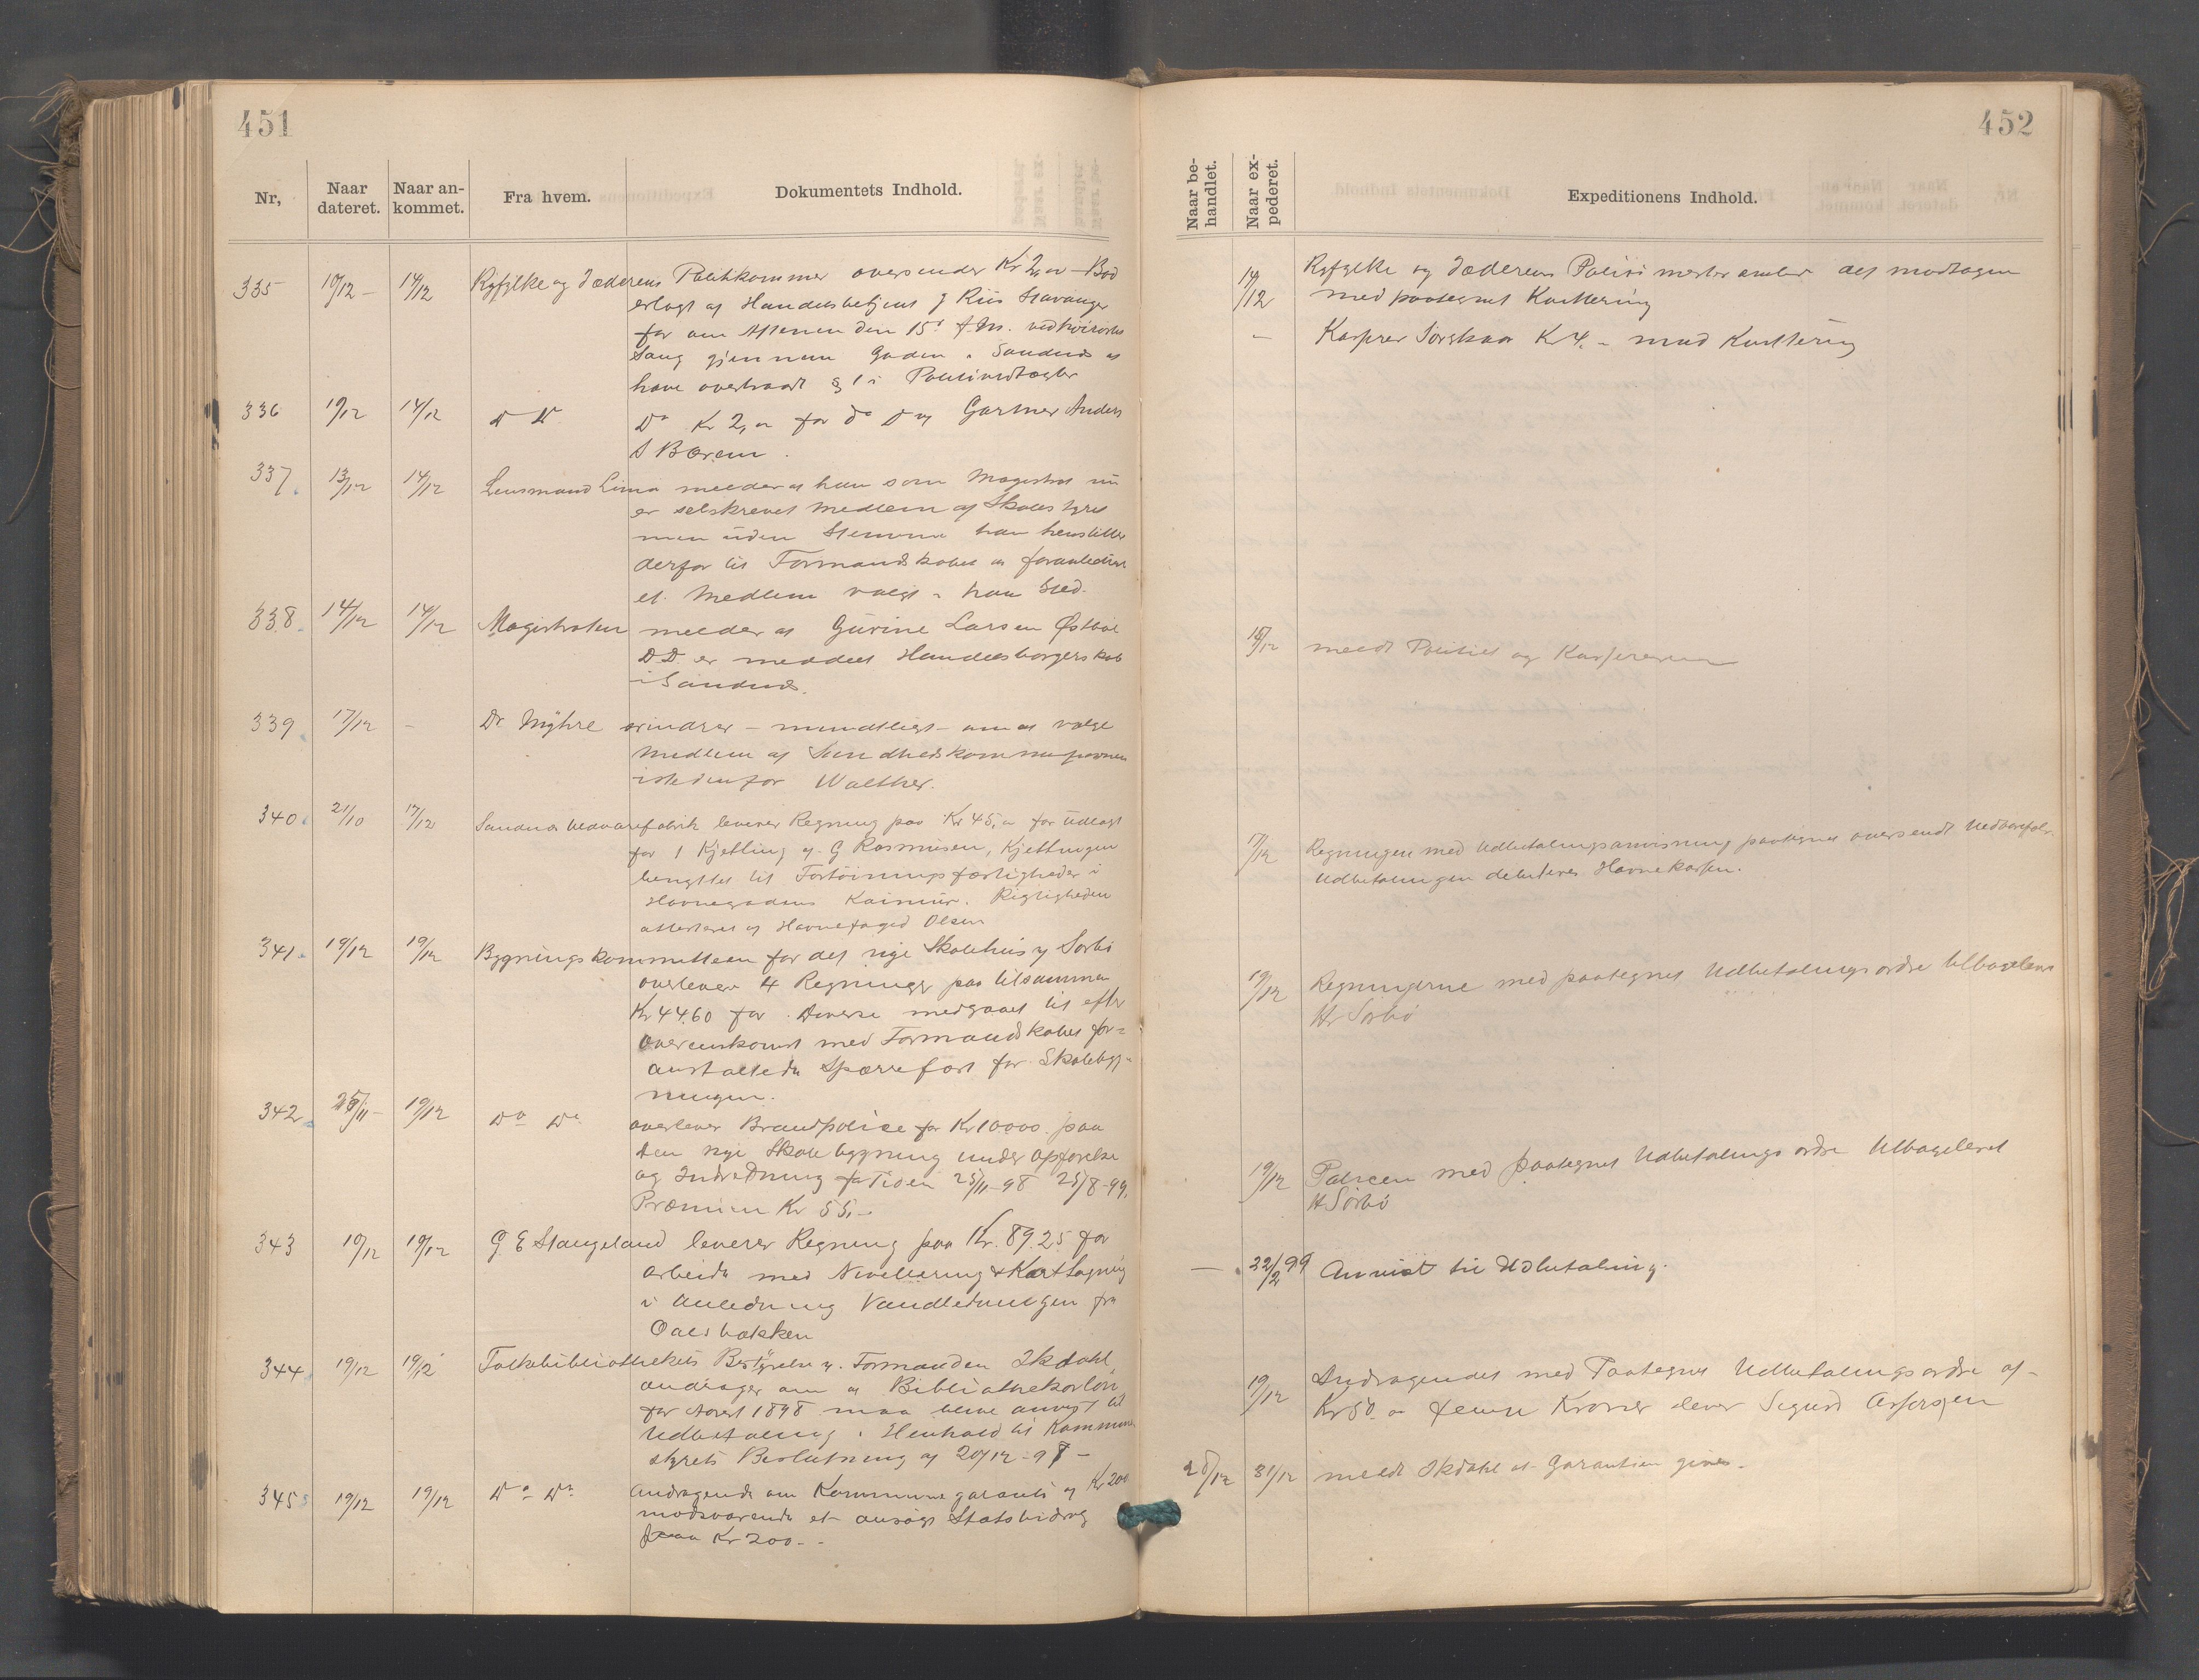 451
Nr,
Naar dateret.
Naar an-kommet.
Fra hvem.
Dokumentets Indhold.
335 10/12 - 14/12 Ryfylke og Jæderens Politikammer oversender Kr 2,00 - Bod
erlagt af Handelsbetjent J Riis Stavanger
for om Aftenen den 15d f.M. ved høirøstet
Sang gjennem Gaden i Sandnes at
have overtraadt § 1 i Politivedtægter
336 10/12 14/12 Do Do Do Kr 2,00 for do Do af Gartner Anders
S Bærem.
337. 13/12 14/12 Lensmand Lima melder at han som Magistrat nu
er selvskrevet Medlem af Skolestyret
men uden Stemme han henstiller
derfor til Formandskabet at foranledige
et Medlem valgt i hans Sted.
338. 14/12 14/12 Magistraten melder at Gurine Larsen Østbø
D.D. er meddelt Handelsborgerskab
i Sandnes.
339. 17/12 - Dr. Myhre erindrer - mundtligt - om at vælge
Medlem af Sundhedskommissionen
istedenfor Walther.
340. 21/10 17/12 Sandnes Uldvarefabrik leverer Regning paa Kr 45,00 for Udlagt
for 1 Kjetting af G Rasmusen, Kjettingen
benyttet til Fortøiningsfærdigheder i
Havnegadens Kaimur. Rigtigheden
attesteret af Havnefoged Olsen
341. 19/12 19/12 Bygningskommitteen for det nye Skolehus v Sørbø
overlever 4 Regninger paa tilsammen
Kr 44.60 for Diverse medgaaet til efter
overenskomst med Formandskabet for=
anstaltede for Skolebyg-
ningen.
342. 25/11 - 19/12 Do Do overlever Brandpolice for Kr 10000. paa
den nye Skolebygning under Opførelse
og Indredning for Tiden 25/11-98 25/8-99,
Præmien Kr 55,-
343 10/12 19/12 G. E Stangeland leverer Regning paa Kr. 89.25 for
arbeide med Nivellering & Karttagning
i Anledning Vandledningen fra
344. 19/12 19/12 Folkebibliothekets Bestyrelse v. Formanden Skdahl,
andrager om at Bibliothekarløn
for Aaret 1898 maa blive anvist til
Udbetaling i Henhold til Kommune
styrets Beslutning af 20/12-97 -
345 19/12 19/12 Do Do Andragende om Kommunegaranti af Kr 200
modsvarende et ansøgt Statsbidrag
paa Kr 200. -
452
Naar be-handlet.
Naar ex-pederet.
Expeditionens Indhold.
14/12 Ryfylke og Jæderens Politimesterembede det modtagen
med paategnet Kvittering
- Kasserer Kr 4. - mod Kvittering
15/12 meldt Politiet og Kassereren
17/12 Regningen med Udbetalingsanvisning paategnet oversendt Uldvarefabr.
Udbetalingen debiteres Havnekassen.
19/12 Regningerne med paategnet Udbetalingsordre tilbagelev
Hr Sørbø
19/12 Policen med paategnet Udbetalingsordre tilbageleveret
Hr Sørbø
— 22/2 99 Anvist til Udbetaling.
19/12 Andragendet med Paategnet Udbetalingsordre af
Kr 50.00 femti Kroner lever Sigurd Asserssen
28/12 31/12 meldt Skdahl at Garantien gives.